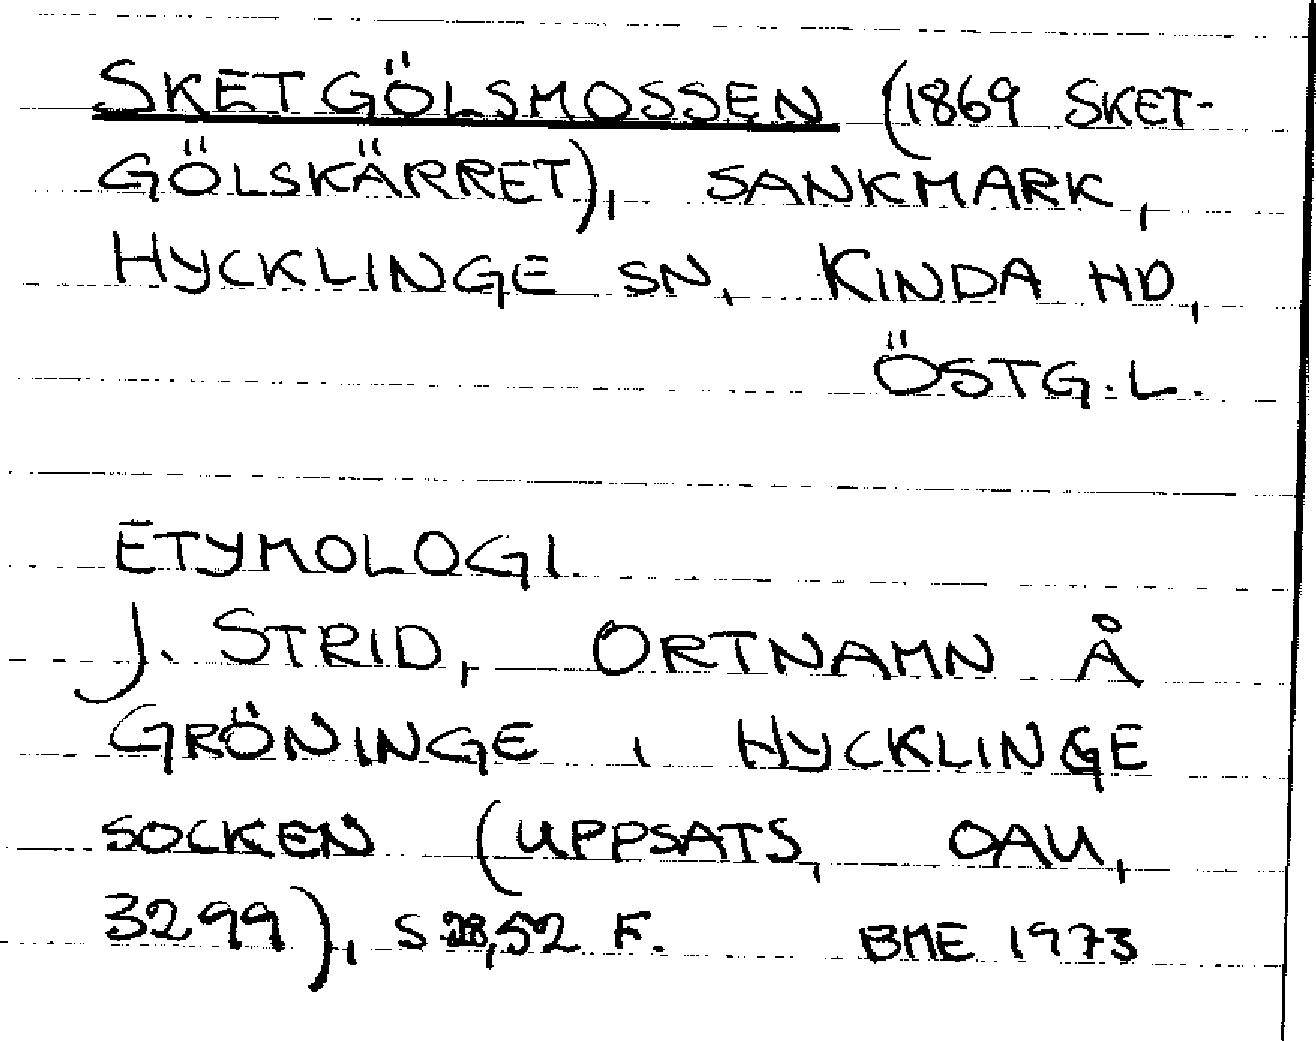 SKETGÖLSMOSSEN (1869 SKET-
GÖLSKÄRRET), SANKMARK,
HYCKLINGE SN, KINDA HD,
ÖSTG.L.
ETYMOLOGI.
J. STRID, ORTNAMN Å
GRÖNINGE I HYCKLINGE
SOCKEN (UPPSATS, OAU,
3299), S 28,52 F. BME 1973